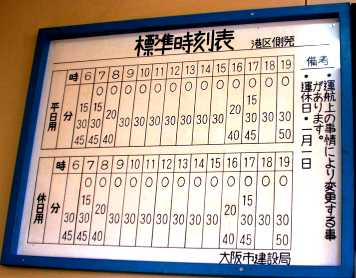 標準時刻表 港区側発
時 6 7 8 9 10 11 12 13 14 15 16 17 18 19
平日用 分
0 0 0 0 0 0 0 0 0 0 0 0 0
15 15 20 20 15
30 30 30 30 30 30 30 30 30 30 30 30 30
45 45 40 40 45 50
時 6 7 8 9 10 11 12 13 14 15 16 17 18 19
休日用 分
30 30 30 30 30 30 30 30 30 30
45 45 40 45 50
備考
・運航上の事情により変更する事
があります。
・運休日・一月一日
大阪市建設局